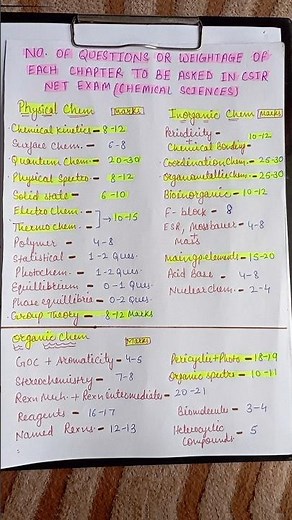 NO. OF QUESTIONS OR WEIGHTAGE OF
EACH CHAPTER TO BE ASKED IN CSIR
NET EXAM (CHEMICAL SCIENCES)
Physical Chem Marks
Chemical kinetics - 8-12
Surface chem. - 6-8
Quantum chem - 20-30
Physical Spectro - 8-12
Solid state - 6-10
Electro Chem -
Thermo chem. - ] → 10-15
Polymer - 4-8
Statistical - 1-2 Ques.
Photochem. - 1-2 Ques
Equilibrium - 0-1 Ques.
Phase equilibria - 0-2 Ques.
Group Theory - 8-12 Marks
Inorganic Chem Marks
Periodicity -
+ 10-12
Chemical Bonding -
Coordination Chem. - 25-30
Organometallic chem. - 25-30
Bioinorganic - 10-12
F-block - 8
ESR, Mossbauer - 4-8
+
Mass
Main gp element - 15-20
Acid Base - 4-8
Nuclear Chem. - 2-4
Organic Chem Marks
GOC + Aromaticity - 4-5
Stereochemistry - 7-8
Rexn Mech. + Rexn intermediate - 20-21
Reagents - 16-17
Named Rexns - 12-13
Pericyclic + Photo - 18-19
Organic spectro - 10-11
Biomolecules - 3-4
Heterocyclic
Compounds - 5